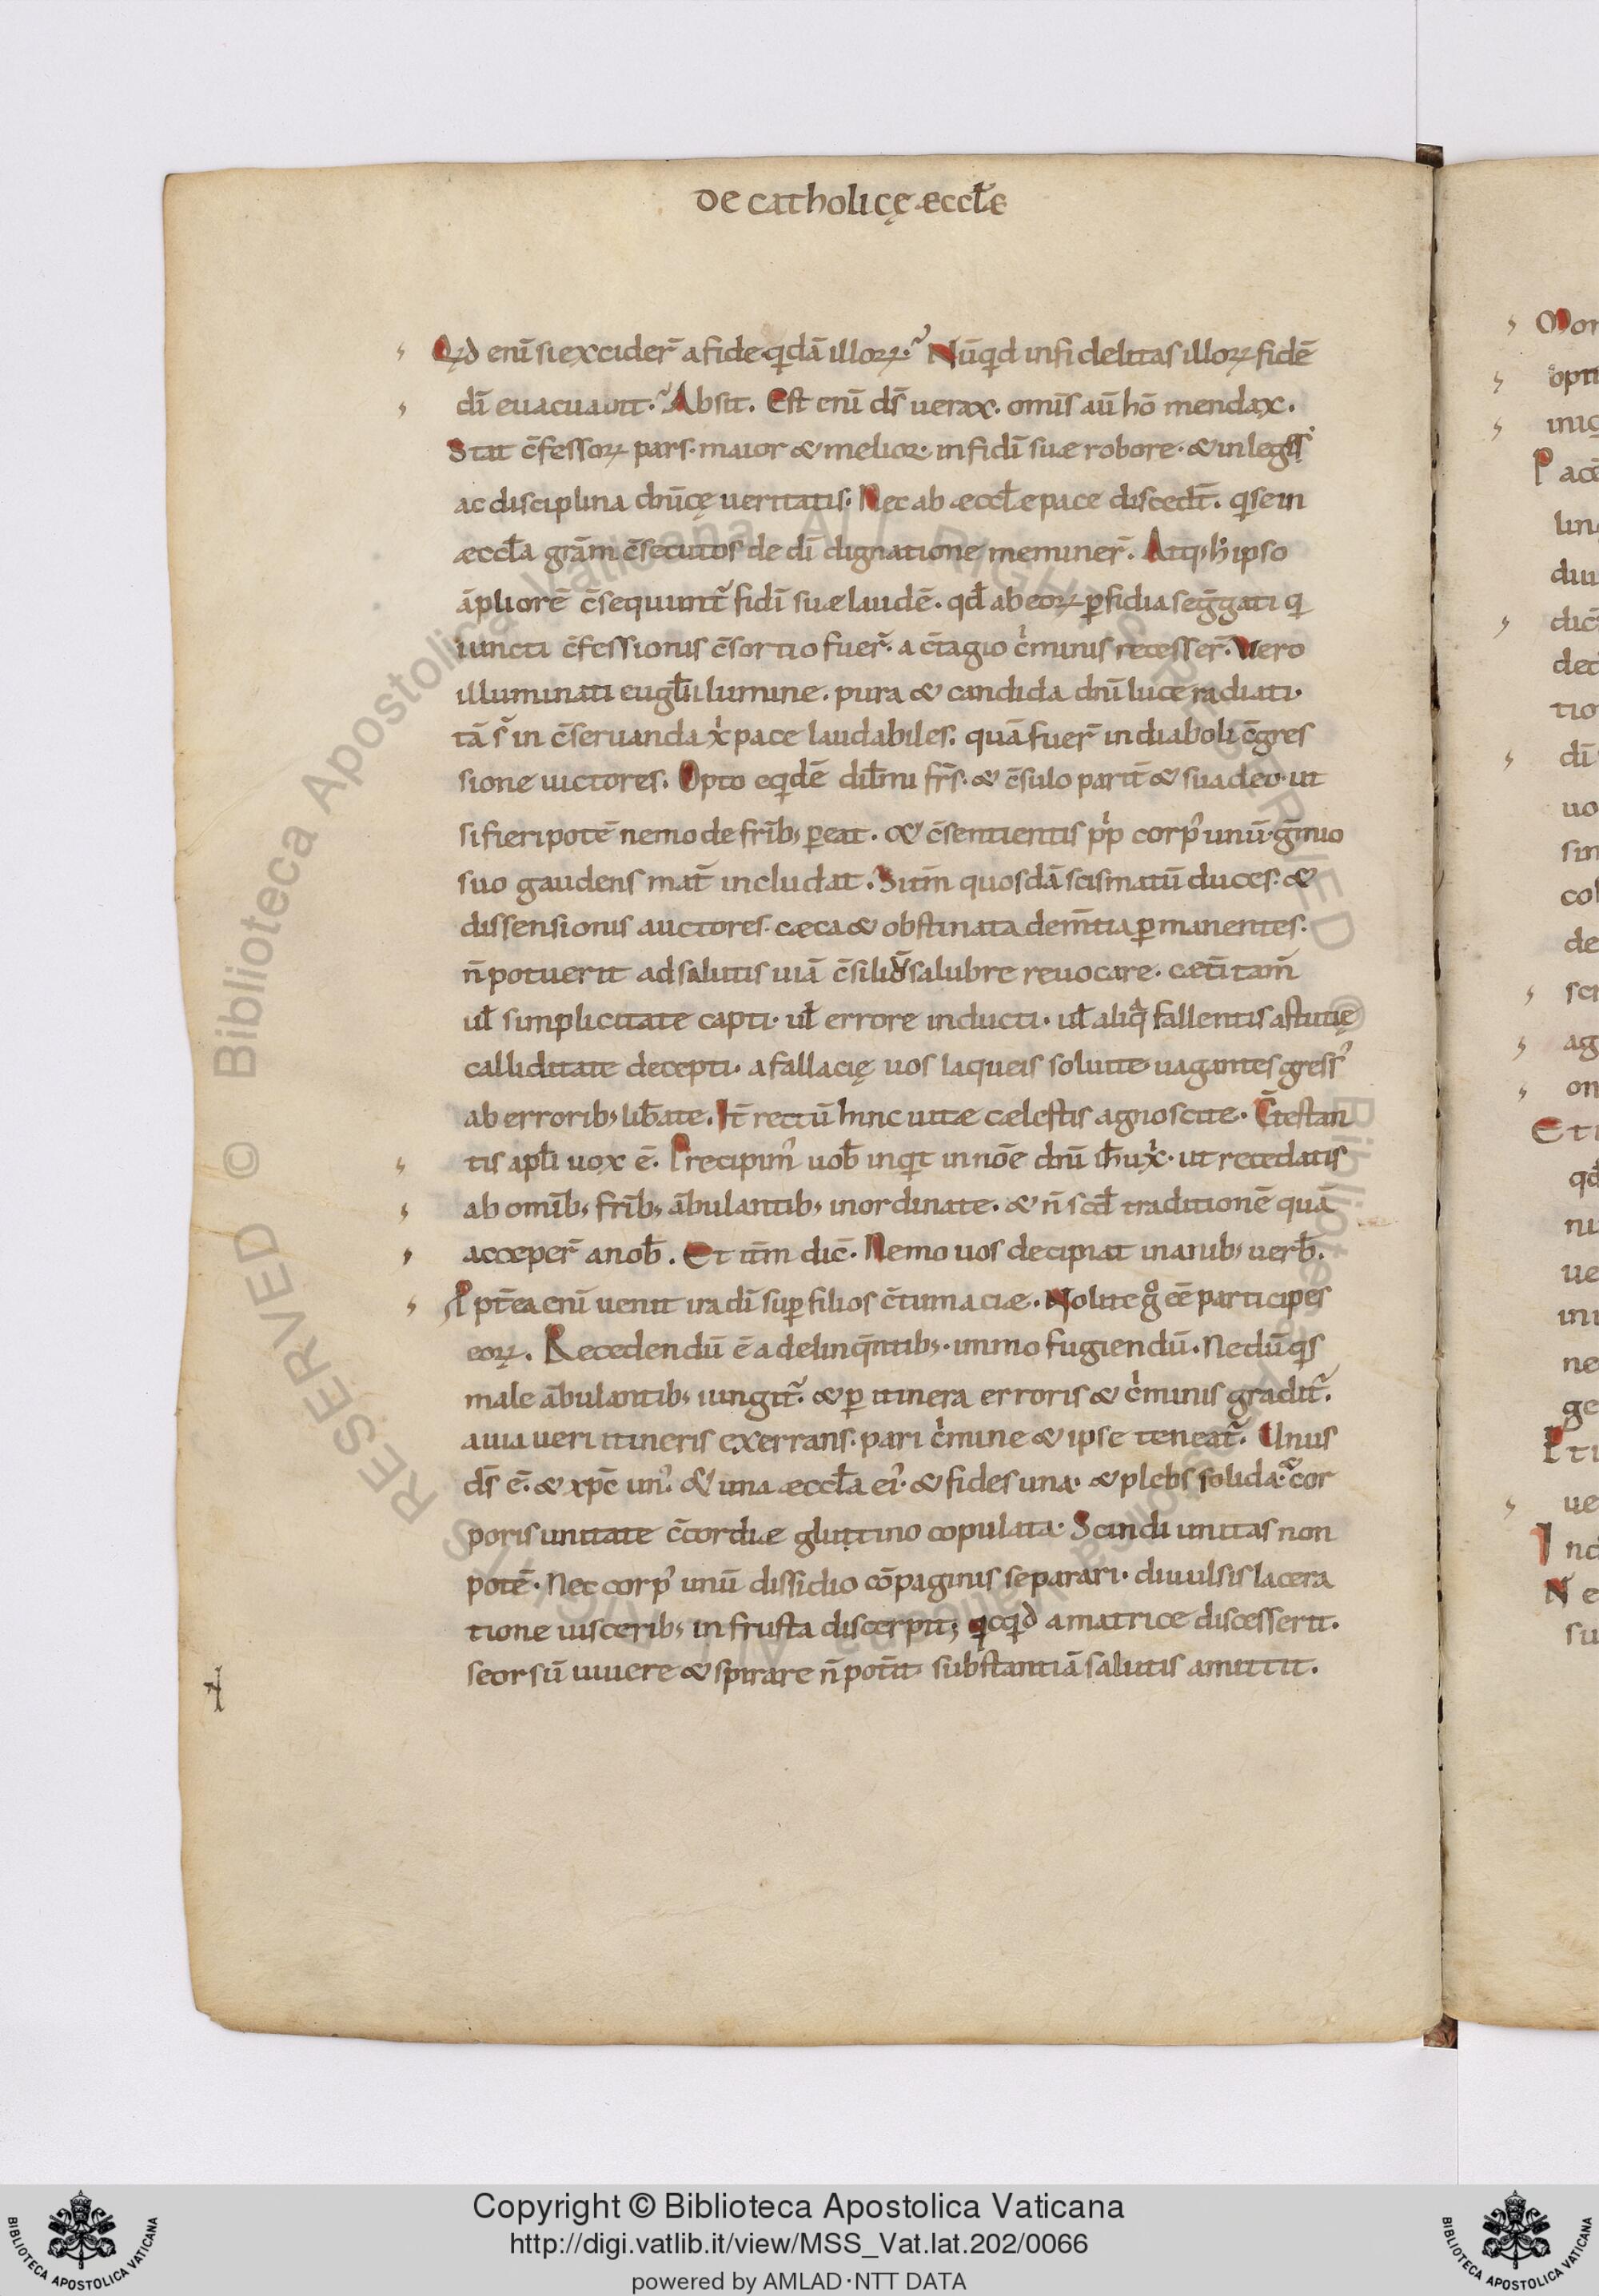 De catholicę æccłæ
Qd̄ enī si excider̄ a fide qdā illoꝝ. Nūqd infidelitas illoꝝ fidē
dī euacuauit. Absit. Est enī ds̄ uerax. omīs aū hō mendax.
Stat c̄fessoꝝ pars. maior & melior. in fidī suæ robore. & in legis
ac disciplina dnīcę ueritatis. Nec ab æccłæ pace discedt̄. qi se in
æccła grām c̄secutos de dī dignatione meminer̄. Atq; h ipso
āpliorē c̄sequunt̄ fidī suæ laudē. qđ ab eoꝝ ꝑfidia seḡgati qi
iuncti c̄fessionis c̄sortio fuer̄. a c̄tagio cͥminis recesser̄. Uero
illuminati eugłii lumine. pura & candida dnī luce radiati.
tā s̄ in c̄seruanda xp̄i pace laudabiles. quā fuer̄ in diaboli c̄gres
sione uictores. Opto eqidē dił̄mi frs̄. & c̄sulo parit̄ & suadeo. ut
si fieri potē nemo de frīb; ꝑeat. & c̄sentientis ppͥ corpꝰ unū. ḡmio
suo gaudens mat̄ includat. Si tm̄ quosdā scismatū duces. &
dissensionis auctores. cæca & obstinata dem̄tia ꝑmanentes.
n̄ potuerit ad salutis uiā c̄siliū salubre reuocare. cæt̄i tam̄
uł simplicitate capti. uł errore inducti. uł aliqͣ fallentis astutię
calliditate decepti. a fallacię uos laqueis soluite. uagantes gressꝰ
ab errorib; lib̄ate. It̄ rectū hinc uitæ cælestis agnoscite. C̄testan
tis apłi uox ē. Precipimꝰ uob̄ inqit in nōe dnī ih̄u xp̄i. ut recedatis
ab omīb; frīb; ābulantib; inordinate. & n̄ scđ traditionē quā
acceper̄ a nob̄. Et itm̄ dic̄. Nemo uos decipiat inanib; uerb̄.
Ppt̄ea enī uenit ira dī suꝑ filios c̄tumaciæ. Nolite gͦ eē participes
eoꝝ. Recedendū ē a delinq̄ntib;. immo fugiendū. Ne dū qis
male ābulantib; iungit̄. & ꝑ itinera erroris & cͥminis gradit̄.
a uia ueri itineris exerrans. pari cͥmine & ipse teneat̄. Unus
ds̄ ē. & xpc̄ unꝰ. & una æccła eiꝰ. & fides una. & plebs solida. cor
poris unitate c̄cordiæ glutino copulata. Scindi unitas non
potē. Nec corpꝰ unū dissidio cōpaginis separari. diuulsis lacera
tione uiscerib; in frusta discerpit; qicqid a matrice discesserit.
seorsū uiuere & spirare n̄ pot̄it substantiā salutis amittit.
Copyright © Biblioteca Apostolica Vaticana
http://digi.vatlib.it/view/MSS_Vat.lat.202/0066
powered by AMLAD·NTT DATA